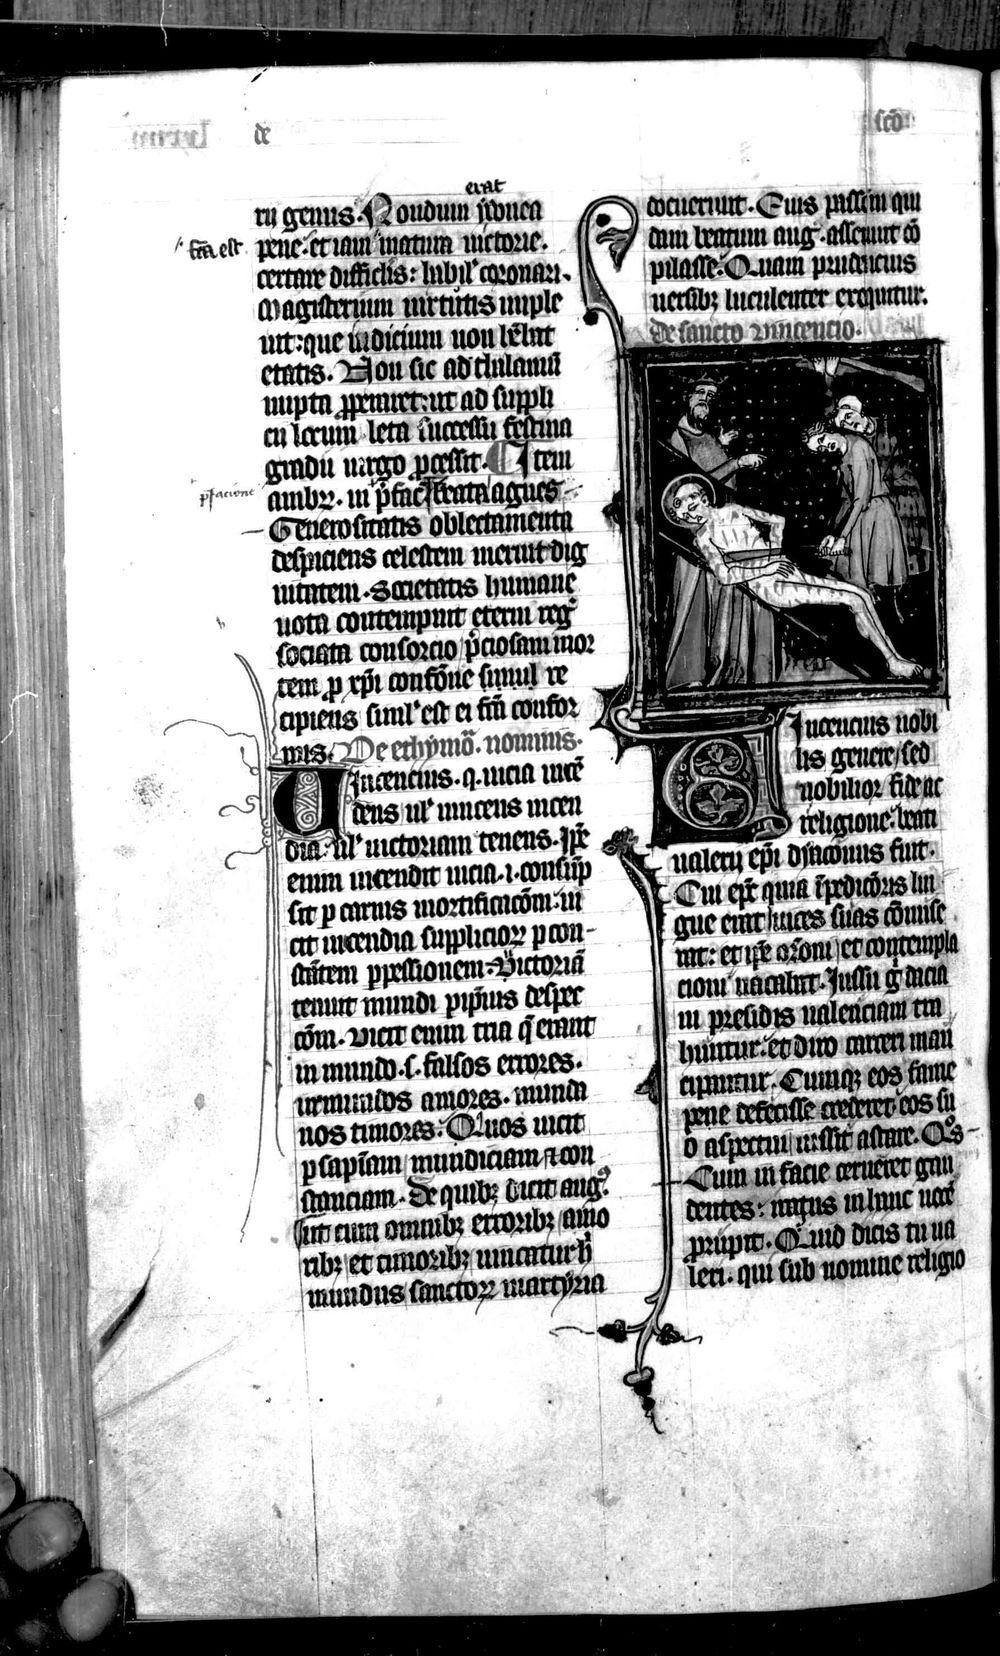 de
scō
erat
rii genus. Nondum ydonea
fc̄a est
pene. et iam matura victorie.
certare difficilis: habil' coronari.
Magisterium virtutis imple
uit: que iudicium non hēbat
etatis. Non sic ad thalamū
nupta ꝓperaret: ut ad suppli
cii locum leta successu festina
gradu uirgo ꝓcessit. Item
p̄facione
ambꝛ. in p̄fac̄ beata agnes
Generositatis oblectamenta
despiciens celestem meruit dig
nitatem. Societatis humane
uota contempnit eterni reg
sociata consorcio p̄ciosam mor
tem ꝓ xp̄i confōne simul re
cipiens simul est ei fc̄a confor
mis. De ethymō. nominis.
Vincencius. q. uicia incē
dens ul' uincens incen
dia. ul' uictoriam tenens. Ip̄e
enim incendit uicia. i. consūp
sit ꝑ carnis mortificacōm: ui
cit incendia supplicioꝝ ꝑ con-
stātem ꝑpessionem. Victoriā
tenuit mundi ꝑ ip̄ius despec
cōm. Vicit enim tria q̄ erant
in mundo. s. falsos errores.
inmundos amores. munda
nos timores. Quos uicit
ꝑ sapīam mundiciam ⁊ con
stanciam. De quibꝫ dicit aug9.
Ut cum omnibꝫ erroribꝫ amo
ribꝫ et timoribꝫ uincatur h
mundus sanctoꝝ martyria
docuerunt. Eius passim qui
dam beatum aug. asserunt cō
pilasse. Quam prudencius
uersibꝫ luculenter exequitur.
De sancto vincencio.
Vincencius nobi
lis genere, sed
nobilior fide ac
religione. beati
ualerii ep̄i dyaconus fuit.
Cui ep̄c quia īpedicōris lin
gue erat uices suas cōmise
rat: et ip̄e or̄oni et contempla
cioni uacabat. Jussu g̊ dacia
ni presidis ualenciam tra
huntur. et diro carceri man
cipantur. Cumqꝫ eos fame
pene defecisse crederet. eos su
o aspectui iussit astare. Qos
Cum in facie cerneret gau
dentes: iratus in hanc uocē
prupit. Quid dicis tu ua
leri. qui sub nomine religio